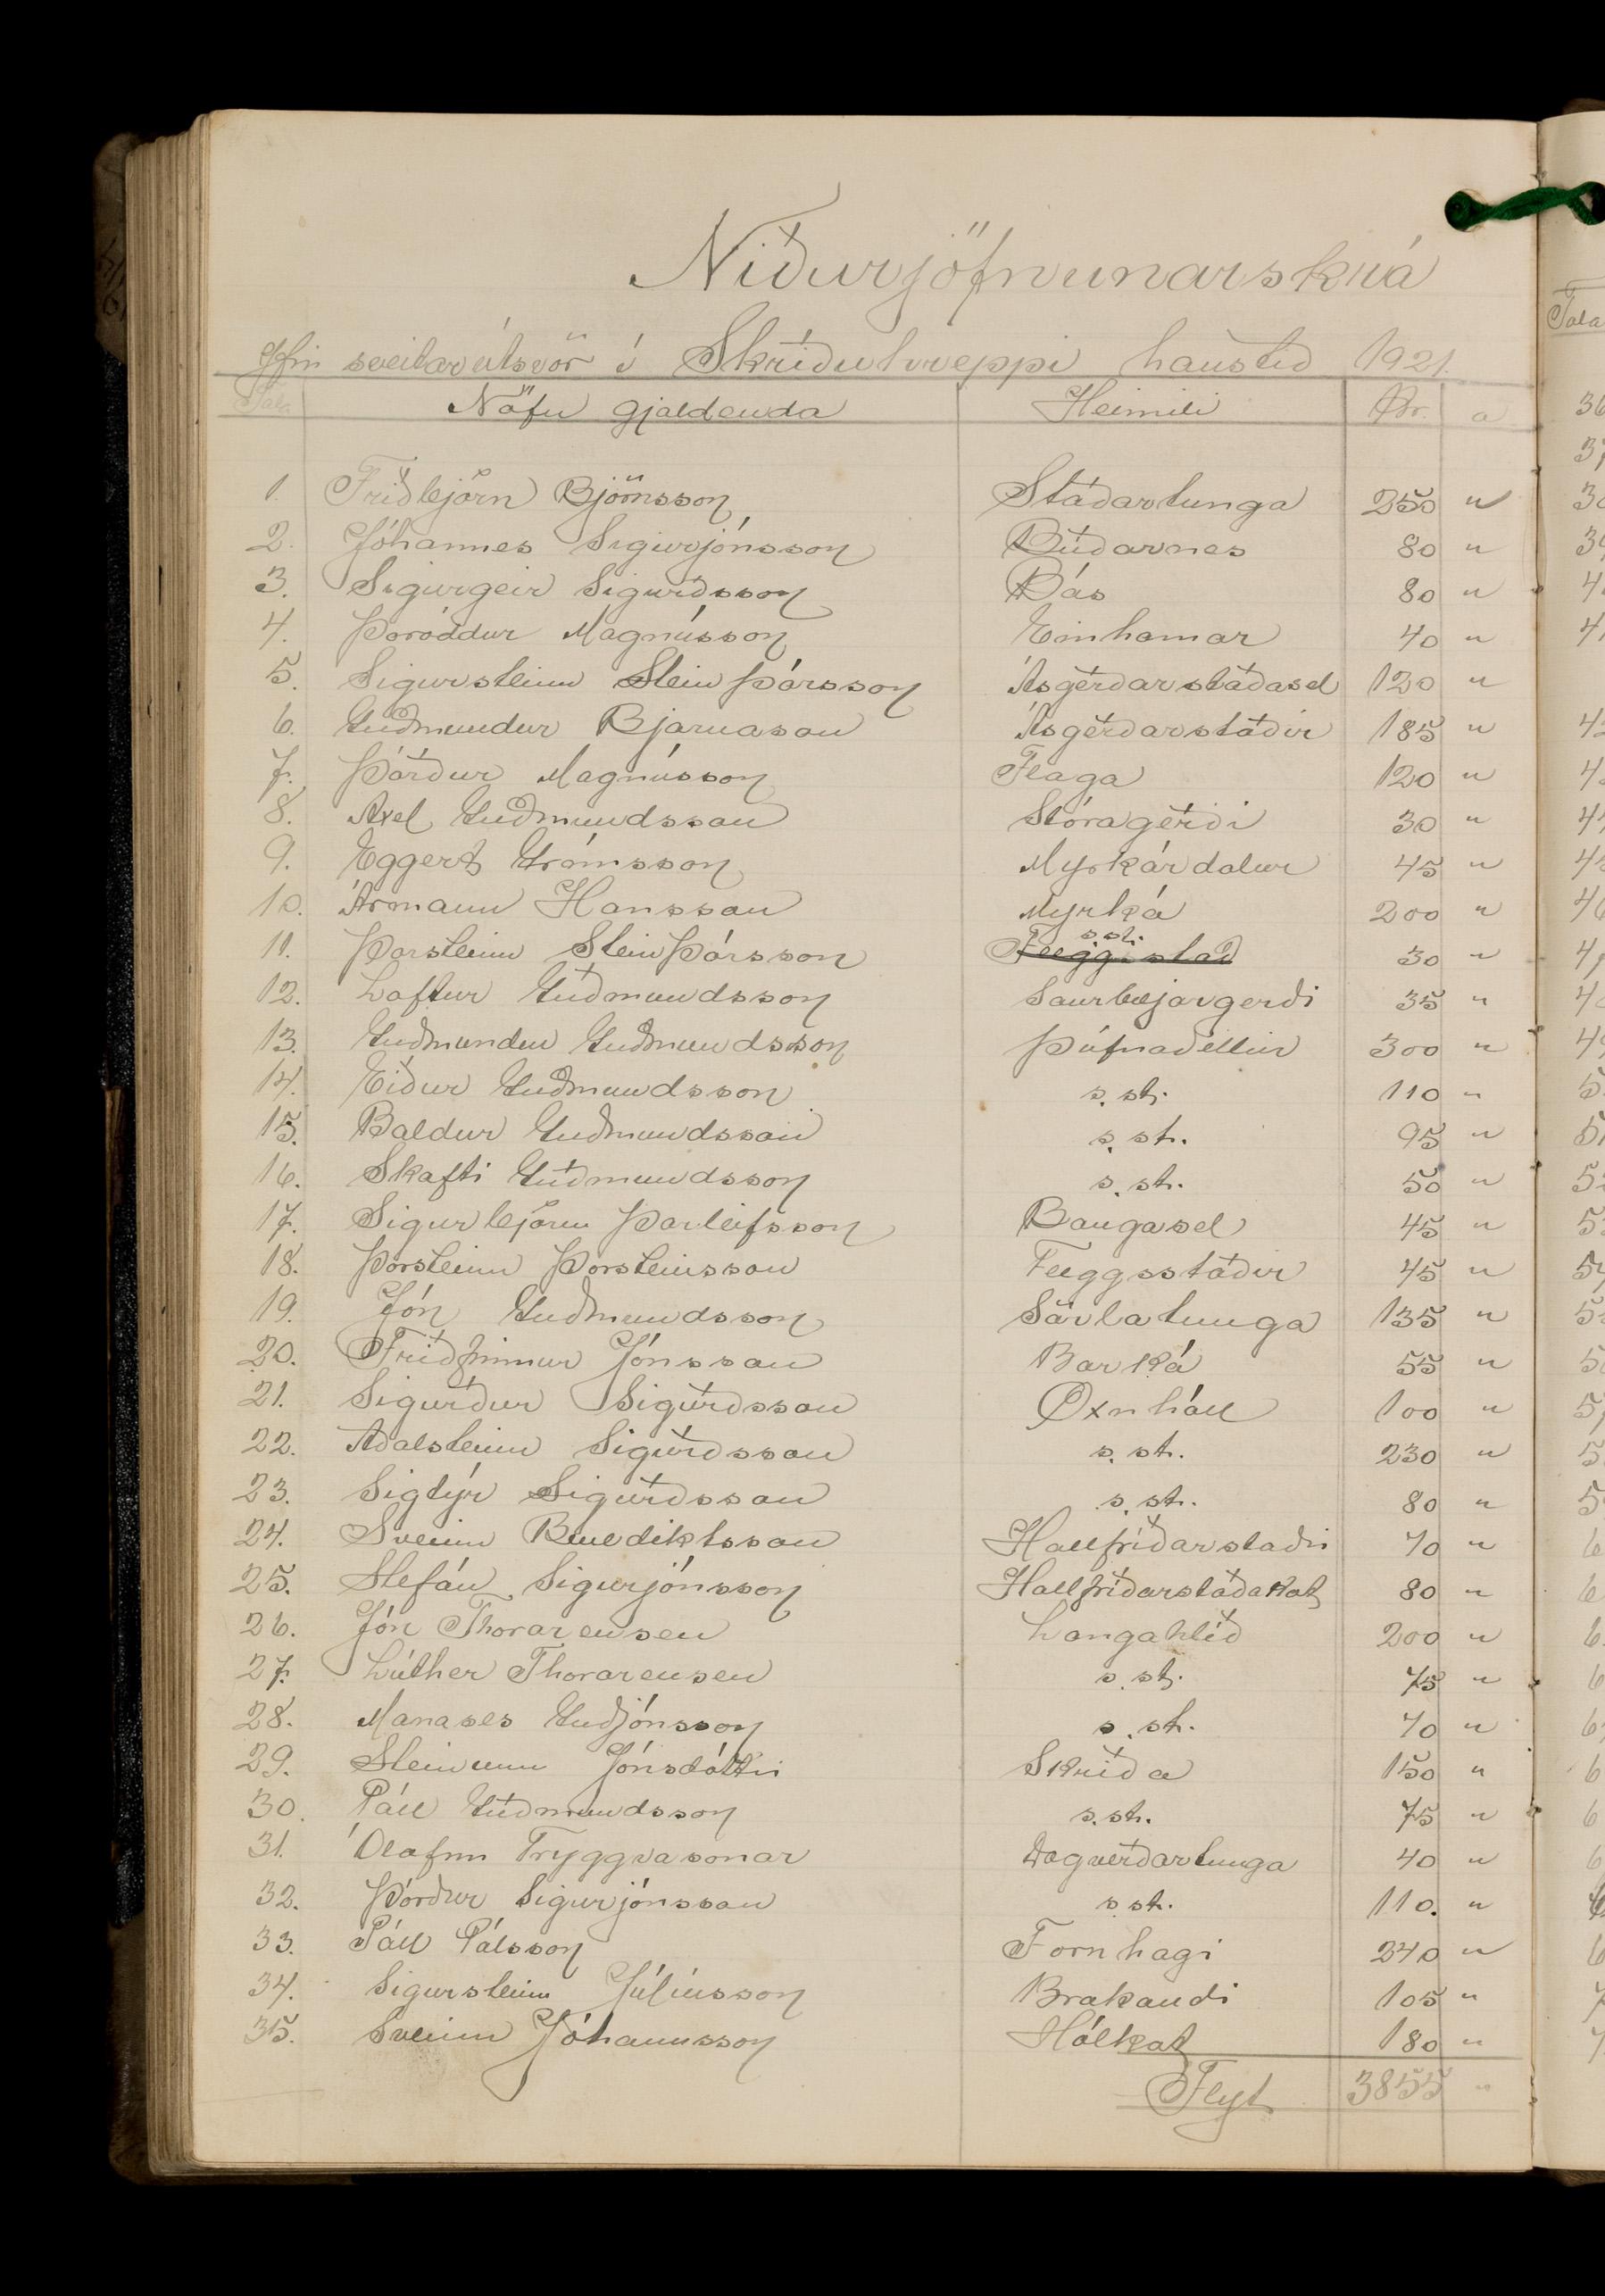 Niðurjöfnunarskrá
Yfir sveitarútsvör í Skriðuhreppi haustið 1921.
Tala Nöfn gjaldenda Heimili Kr. a
1. Friðbjörn Björnsson Staðartunga 250 "
2. Jóhannes Sigurjónsson Búðarnes 80 "
3. Sigurgeir Sigurðsson Bás 80 "
4. Þoroddur Magnússon Einhamar 40 "
5. Sigursteinn Steinþórsson Ásgerðarstaðasel 120 "
6. Guðmundur Bjarnason Ásgerðarstaðir 185 "
7. Þórður Magnússon Flaga 120 "
8. Axel Guðmundsson Stóragerði 30 "
9. Eggert Grímsson Myrkárdalur 45 "
10. Ármann Hansson Myrká 200 "
11. Þorsteinn Steinþórsson Féeggstað s.st. 30 "
12. Loftur Guðmundsson Saurbæjargerði 35 "
13. Guðmundur Guðmundsson Þúfnavellir 300 "
14. Eiður Guðmundsson s. st. 110 "
15. Baldur Guðmundsson s. st. 95 "
16. Skafti Guðmundsson s. st. 50 "
17. Sigurbjörn Þorleifsson Baugasel 45 "
18. Þorsteinn Þorsteinsson Féeggsstaðir 45 "
19. Jón Guðmundsson Sörlatunga 135 "
20. Friðfinnur Jónsson Barká 55 "
21. Sigurður Sigurðsson Öxnhóll 100 "
22. Aðalsteinn Sigurðsson s. st. 230 "
23. Sigtýr Sigurðsson s. st. 80 "
24. Sveinn Benediktsson Hallfríðarstaðir 70 "
25. Stefán Sigurjónsson Hallfríðarstaðakot 80 "
26. Jón Thorarensen Langahlíð 200 "
27. Lúther Thorarensen s. st. 75 "
28. Manases Guðjónsson s. st. 70 "
29. Steinunn Jónsdóttir Skriða 150 "
30. Páll Guðmundsson s. st. 75 "
31. Ólafur Tryggvasonar Dagverðartunga 40 "
32. Þórður Sigurjónsson s st. 110. "
33. Páll Pálsson Fornhagi 240 "
34. Sigursteinn Júlíusson Brakandi 105 "
35. Sveinn Jóhannsson Hólkot 180 "
Flyt 3855 "
Tala